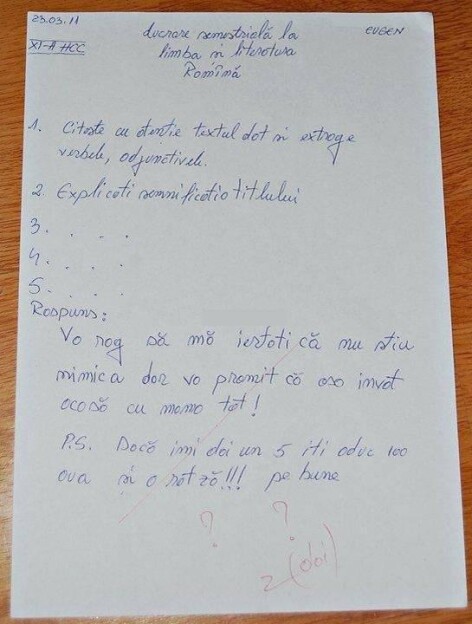 23.03.11
EUGEN
XI-A HCC
Lucrare semestrială la
limba și literatura
Romînă
1. Citește cu atenție textul dat și extrage
verbele, adjunctivele.
2. Explicati semnificatia titlului
3. . . .
4. . . .
5. . . .
Raspuns:
Va rog să mă iertati că nu stiu
nimica dar va promit că asa invat
acasă cu mama tot!
P.S. Dacă imi dai un 5 iti aduc 100
oua și o rată!!! pe bune
? ?
2 (doi)